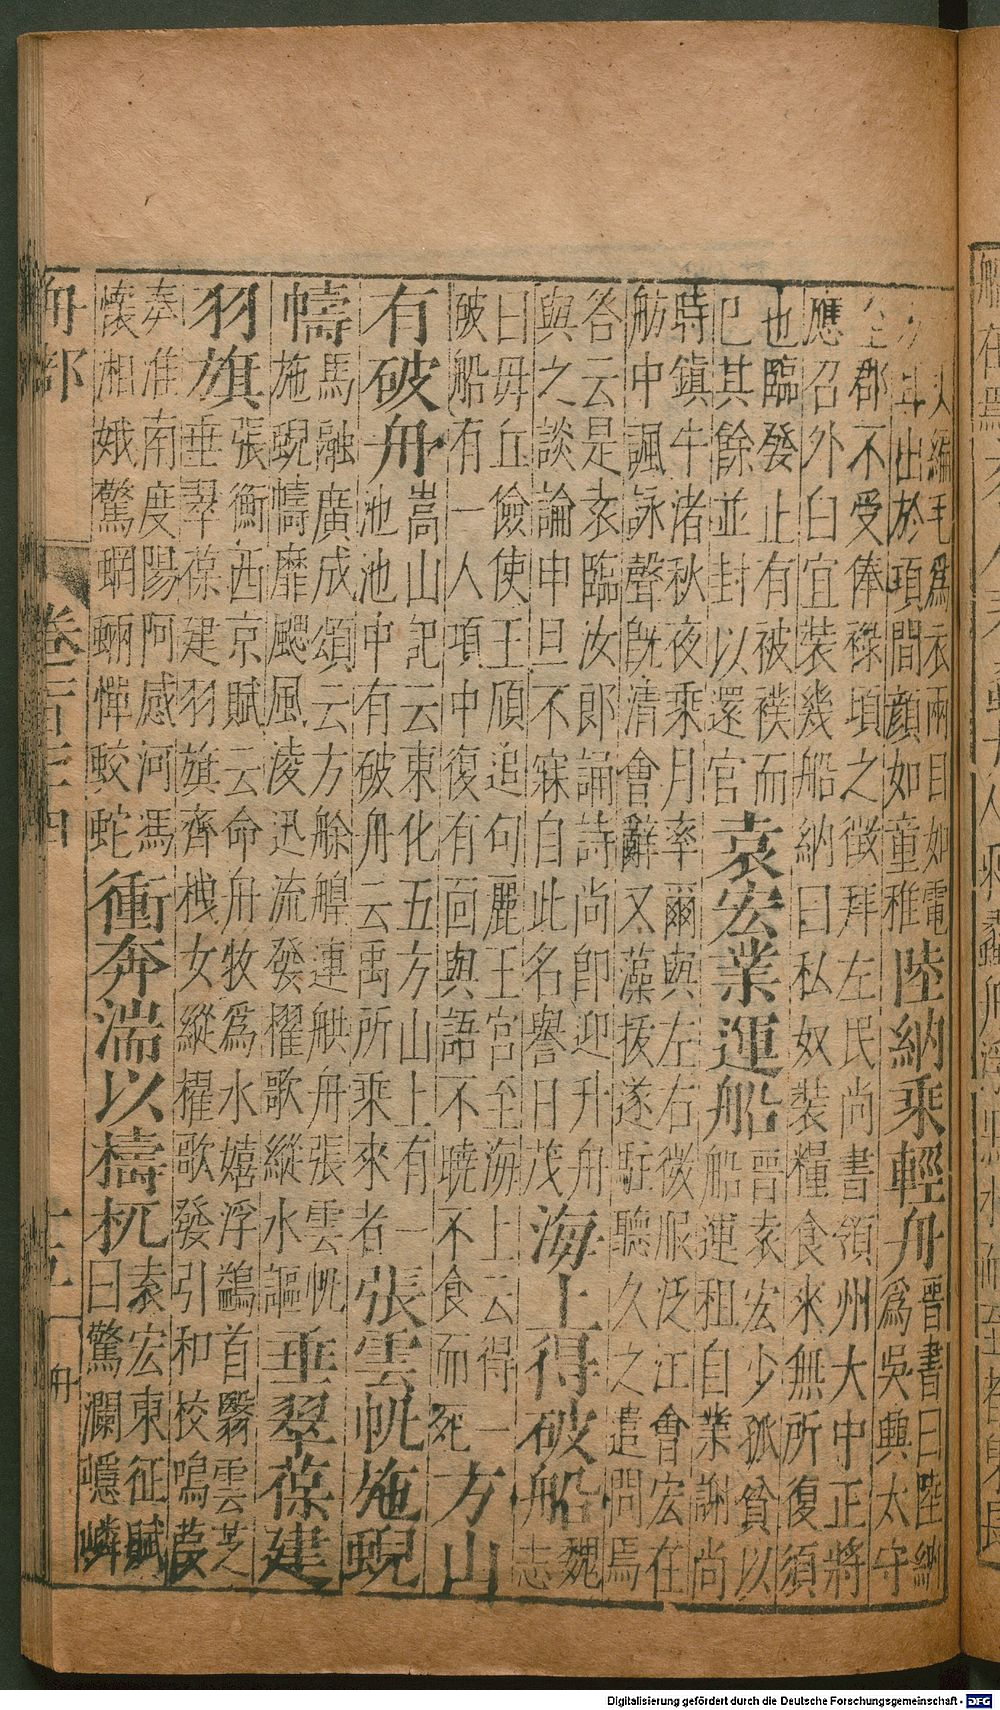 人編毛爲衣兩目如電
出於項間顔如童稚
陸納乘輕舟
晉書曰陸納
爲吳興太守
至郡不受俸祿頃之徵拜左民尚書領州大中正將
應召外白宜裝幾船納曰私奴裝糧食來無所復須
也臨發止有被襆而
已其餘並封以還官
袁宏業運船
晉袁宏少孤貧以
船運租自業謝尚
時鎮牛渚秋夜乘月率爾與左右微服泛江會宏在
舫中諷詠聲既清會辭又藻拔遂駐聽久之遣問焉
答云是袁臨汝郎誦詩尚即迎升舟
與之談論申旦不寐自此名譽日茂
海上得破船
魏
志
曰毋丘儉使王頎追句麗王宮至海上云得一
破船有一人項中復有面與語不曉不食而死
方山
有破舟
嵩山記云東化五方山上有一
池池中有破舟云禹所乘來者
張雲帆施蜺
幬
馬融廣成頌云方艅艎連舼舟張雲帆
施蜺幬靡颸風凌迅流發櫂歌縱水謳
垂翠葆建
羽旗
張衡西京賦云命舟牧爲水嬉浮鷁首翳雲芝
垂翠葆建羽旗齊栧女縱櫂歌發引和校鳴葭
奏淮南度陽阿感河馮
懷湘娥驚蝄蜽憚蛟蛇
衝奔湍以檮杌
袁宏東征賦
曰驚瀾嶾嶙
舟部
卷一百三十四
十五
舟
Digitalisierung gefördert durch die Deutsche Forschungsgemeinschaft - DFG